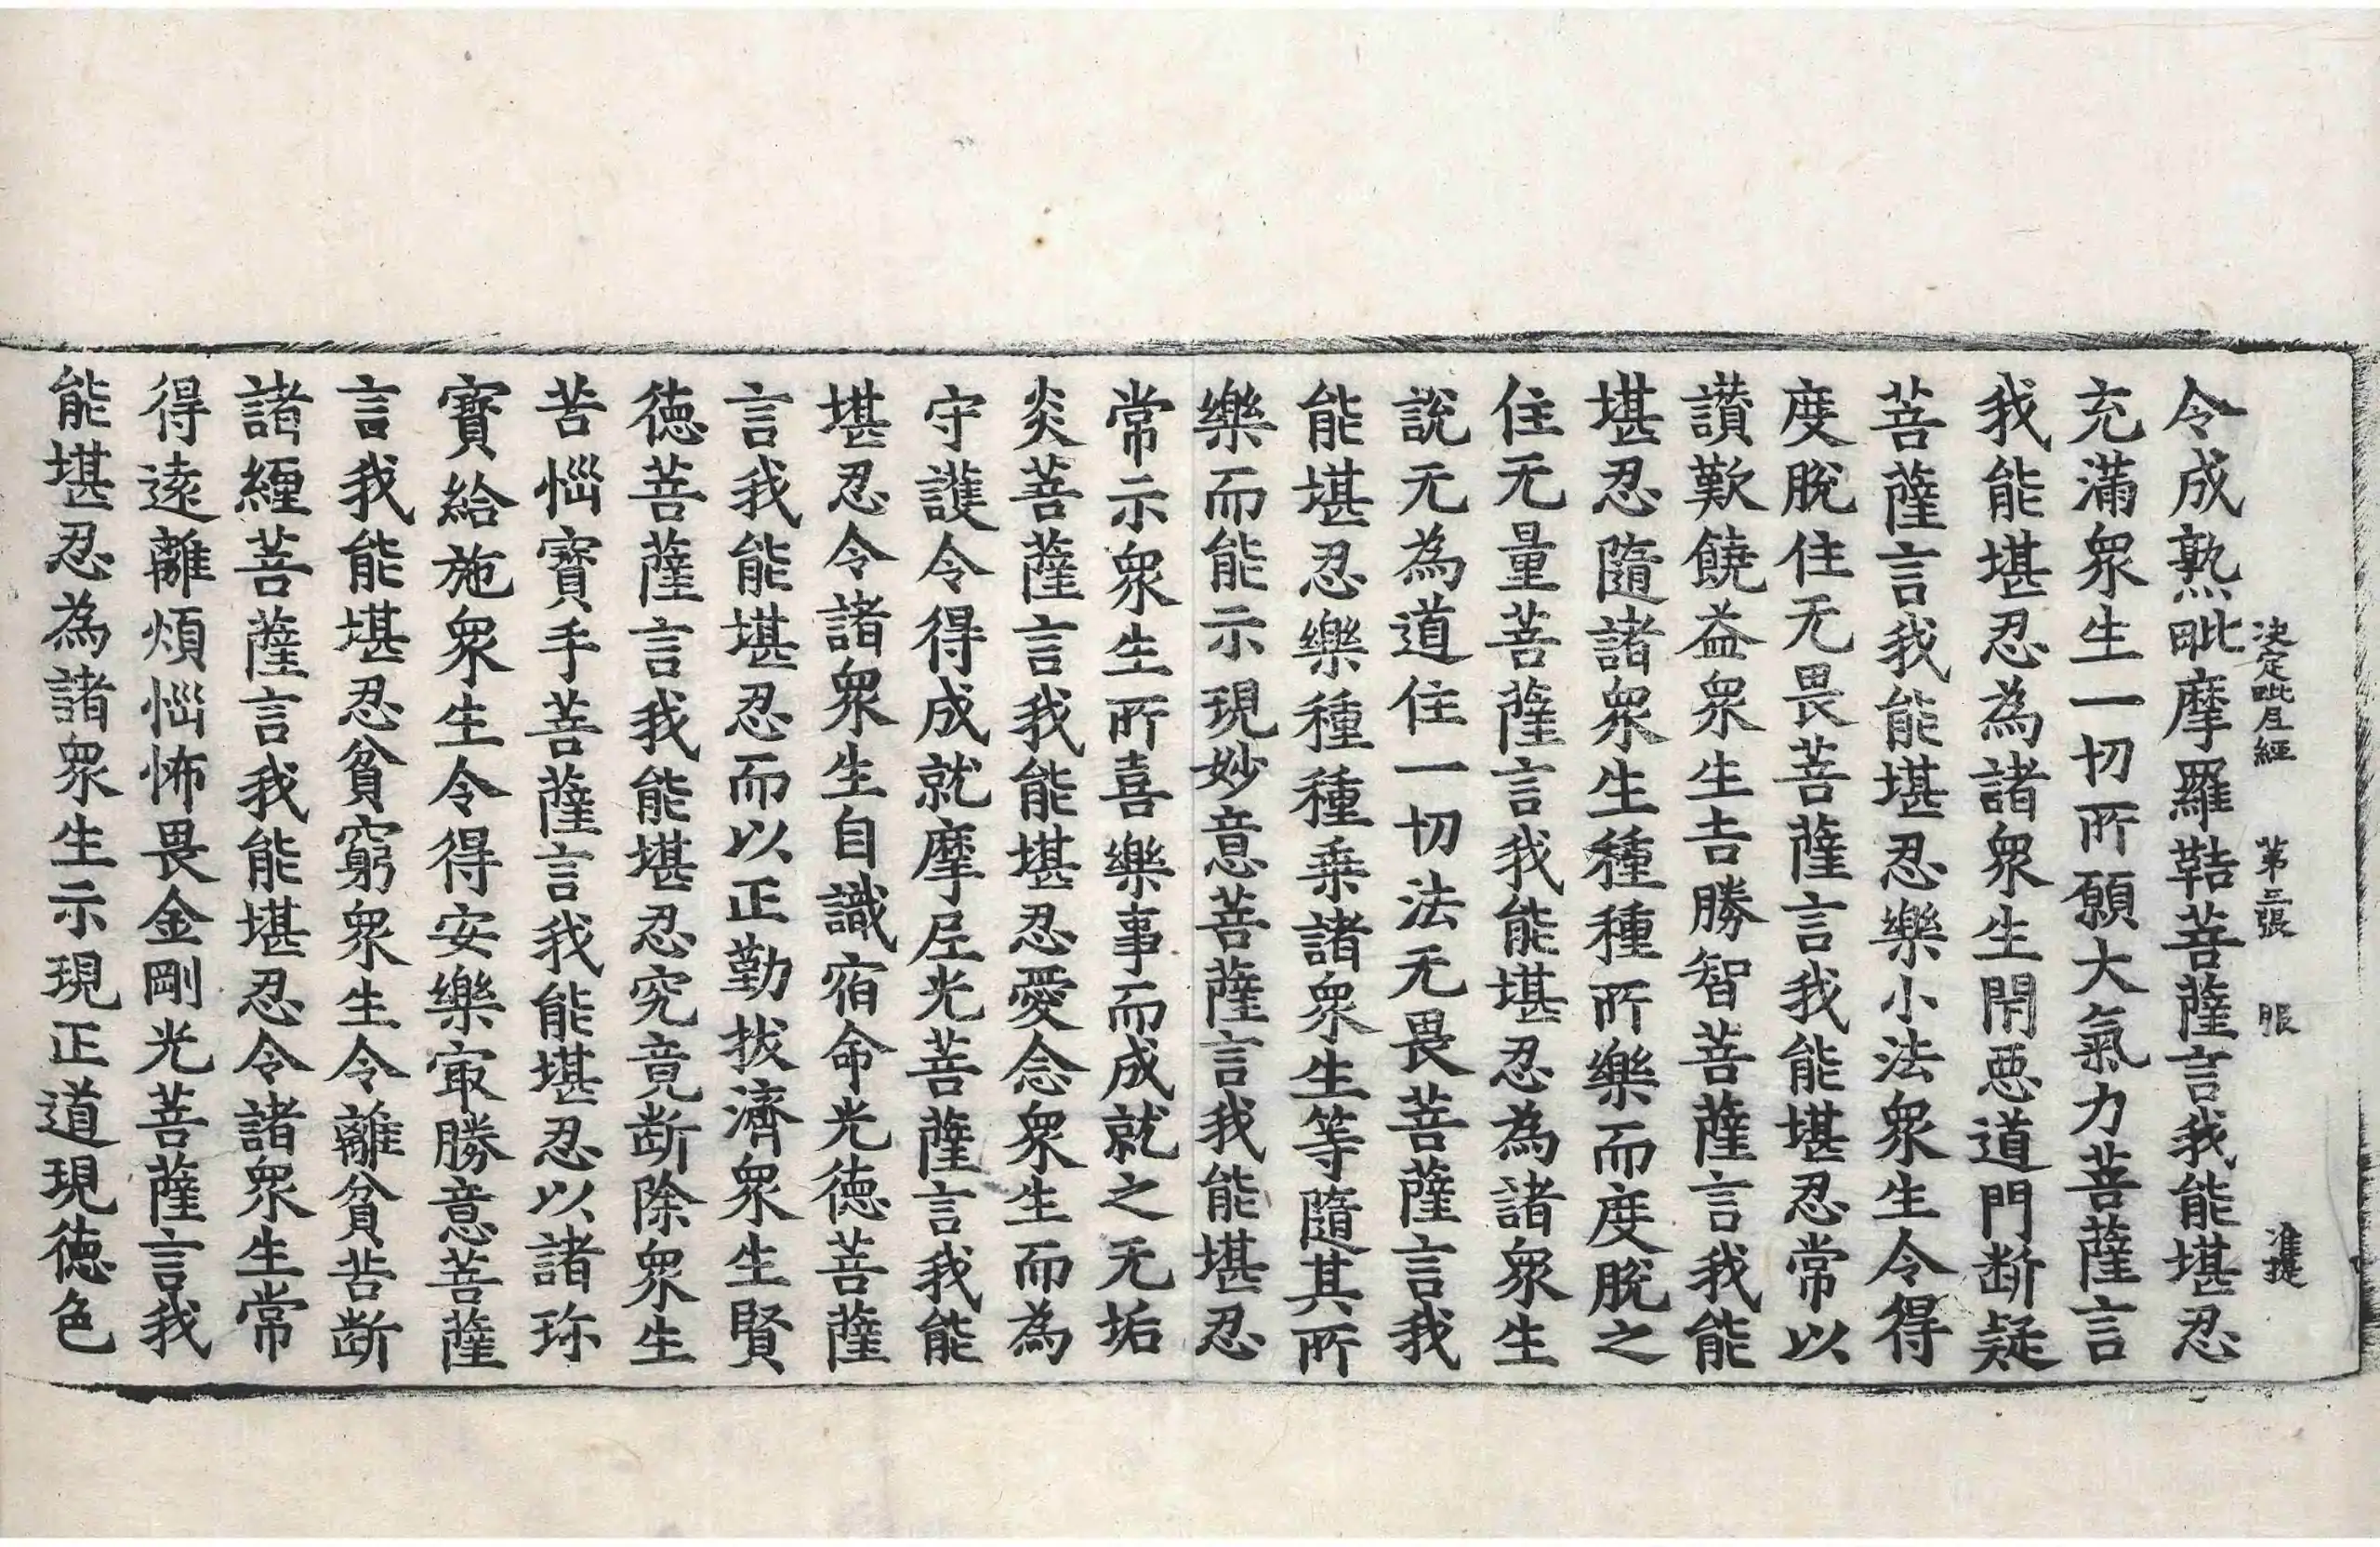 決定毗尼經 第三張 服 准提
令成熟毗摩羅鞊菩薩言我能堪忍
充滿衆生一切所願大氣力菩薩言
我能堪忍為諸衆生閇惡道門斷疑
菩薩言我能堪忍樂小法衆生令得
度脫住无畏菩薩言我能堪忍常以
讃歎饒益衆生吉勝智菩薩言我能
堪忍隨諸衆生種種所樂而度脫之
住无量菩薩言我能堪忍為諸衆生
說无為道住一切法无畏菩薩言我
能堪忍樂種種乗諸衆生等隨其所
樂而能示現妙意菩薩言我能堪忍
常示衆生所喜樂事而成就之无垢
炎菩薩言我能堪忍愛念衆生而為
守護令得成就摩尼光菩薩言我能
堪忍令諸衆生自識宿命光徳菩薩
言我能堪忍而以正勤拔濟衆生賢
徳菩薩言我能堪忍究竟斷除衆生
苦惱寶手菩薩言我能堪忍以諸珎
寶給施衆生令得安樂㝡勝意菩薩
言我能堪忍貧窮衆生令離貧苦斷
諸纏菩薩言我能堪忍令諸衆生常
得遠離煩惱怖畏金剛光菩薩言我
能堪忍為諸衆生示現正道現徳色